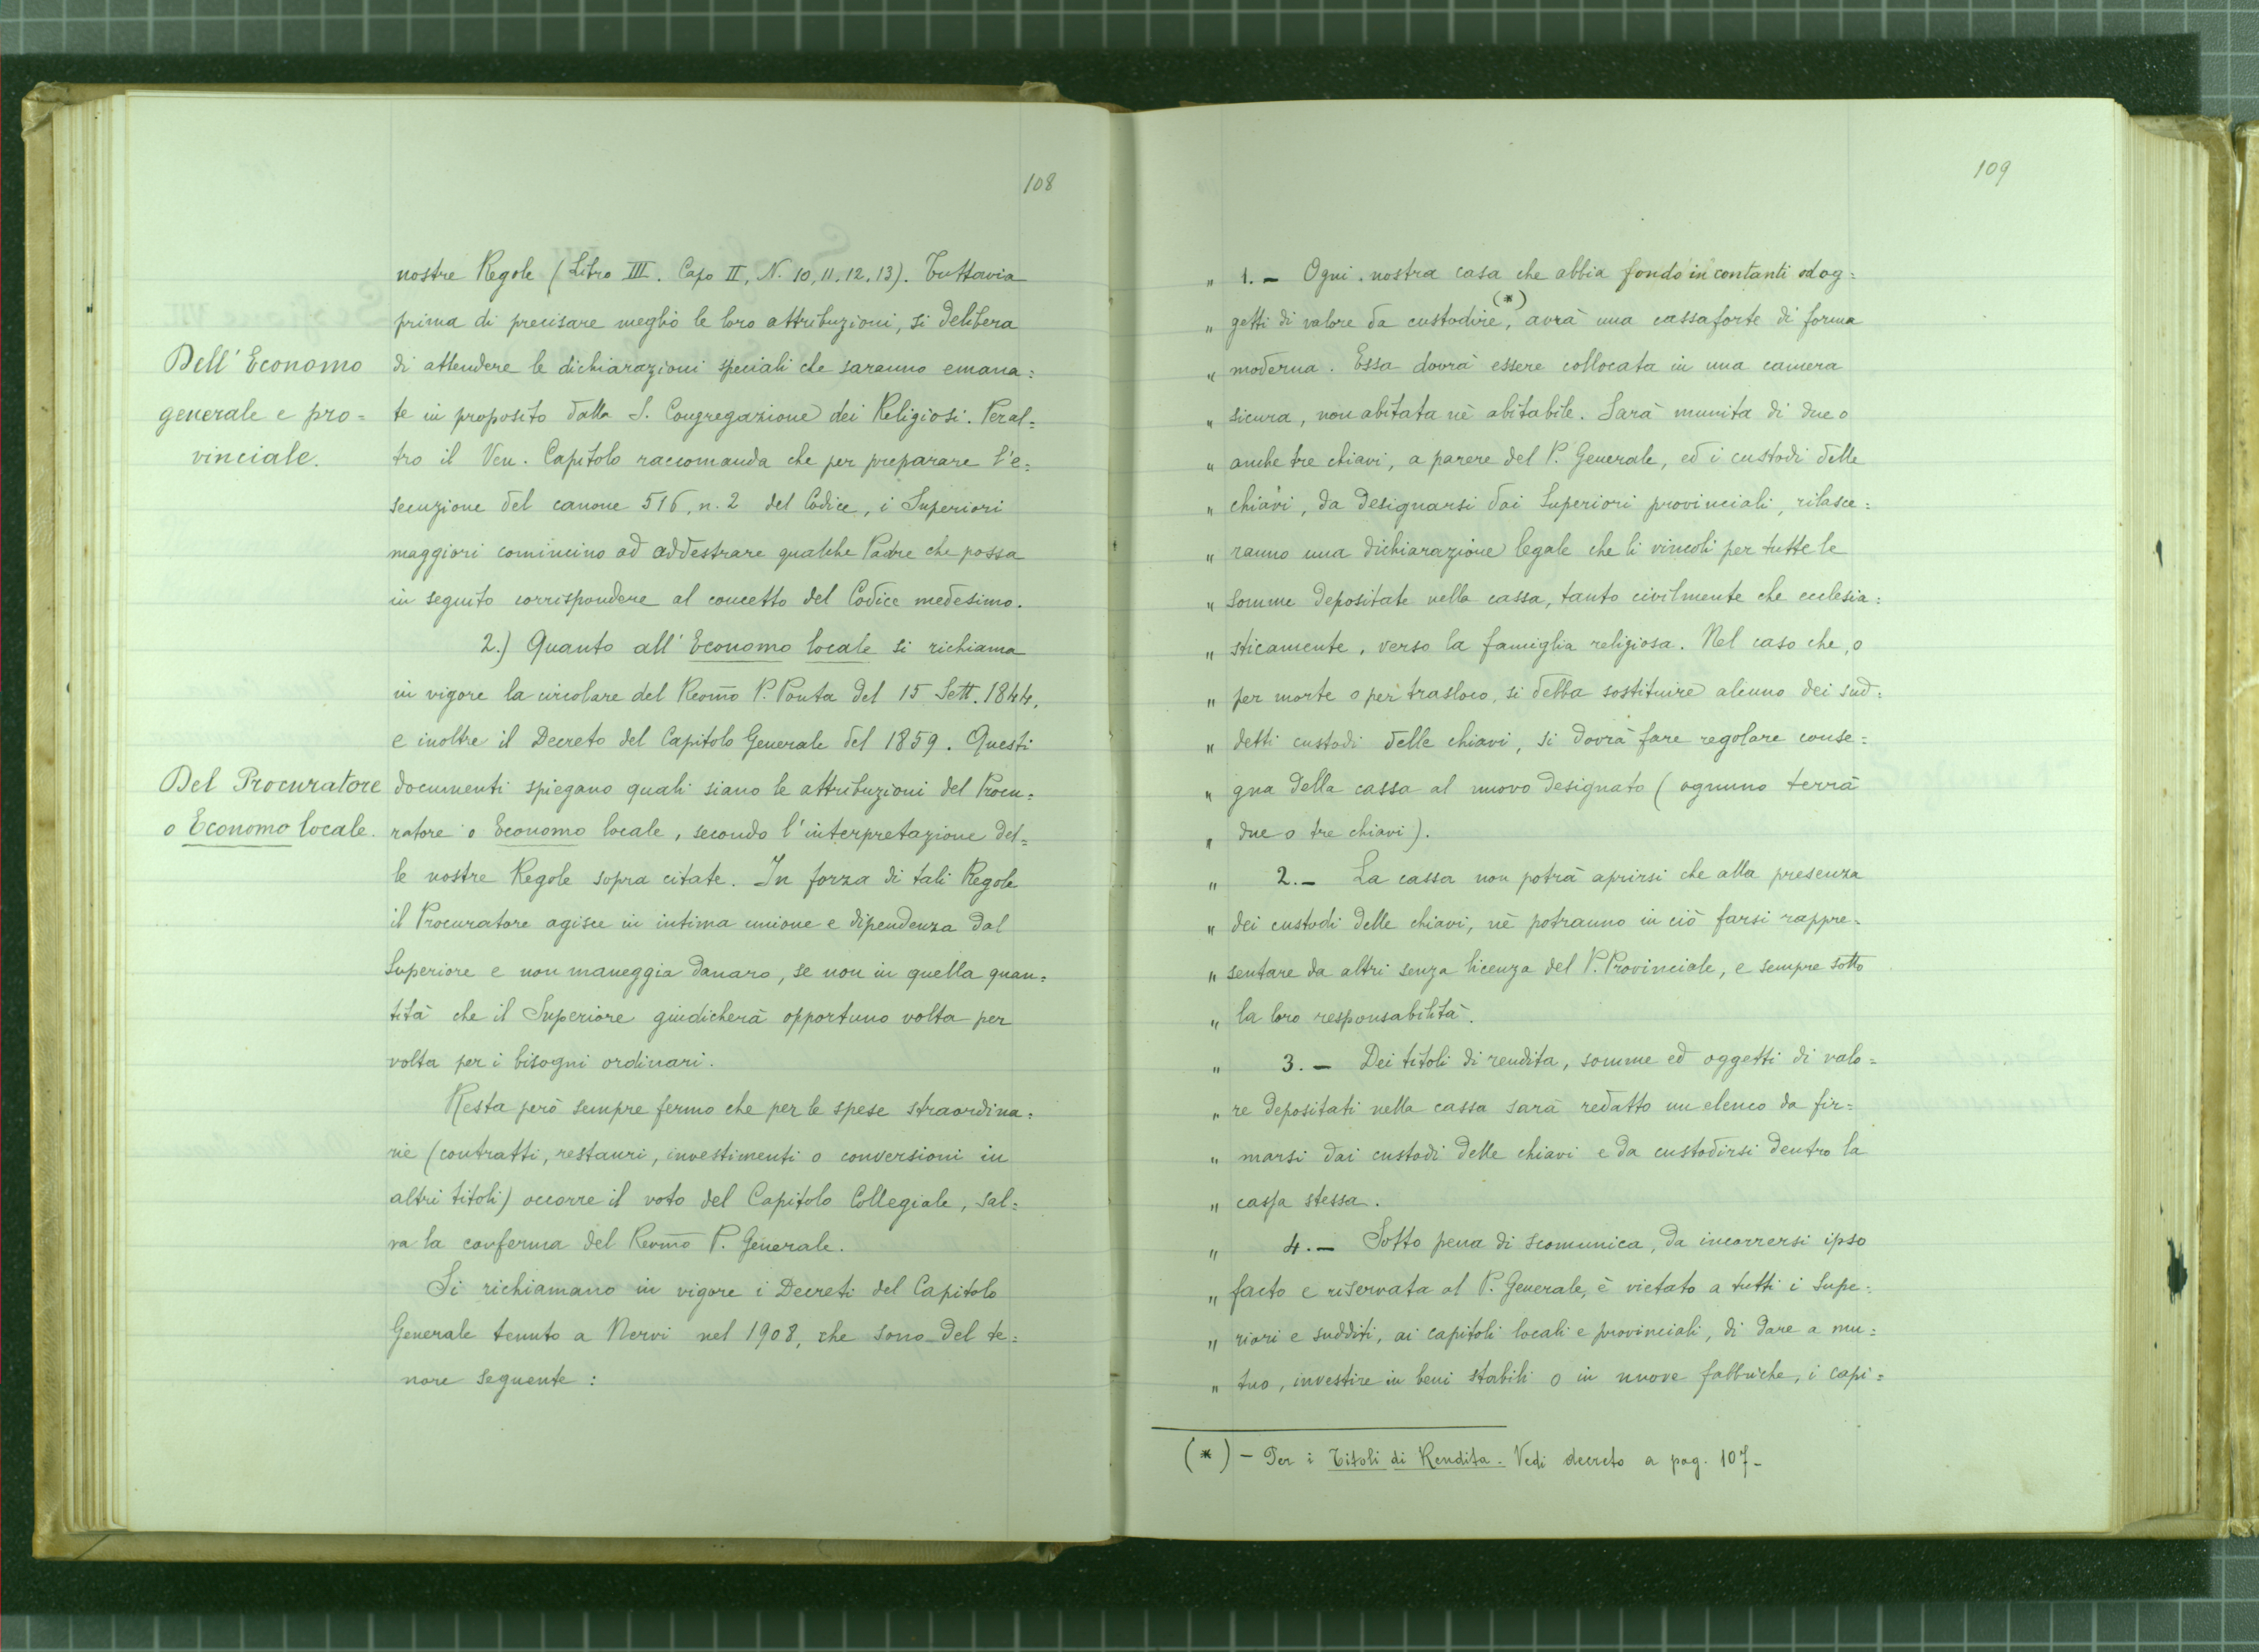 108
nostre Regole (Libro III. Capo II, N. 10, 11, 12, 13). Tuttavia
prima di precisare meglio le loro attribuzioni, si delibera
di attendere le dichiarazioni speciali che saranno emana=
te in proposito dalla S. Congregazione dei Religiosi. Peral=
tro il Ven. Capitolo raccomanda che per preparare l'e=
secuzione del canone 516, n. 2 del Codice, i Superiori
maggiori comincino ad addestrare qualche Padre che possa
in seguito corrispondere al concetto del Codice medesimo.
Dell' Economo
generale e pro=
vinciale.
2.) Quanto all' Economo locale si richiama
in vigore la circolare del Revmo P. Ponta del 15 Sett. 1844,
e inoltre il Decreto del Capitolo Generale del 1859. Questi
documenti spiegano quali siano le attribuzioni del Procu=
ratore o Economo locale, secondo l'interpretazione del=
le nostre Regole sopra citate. In forza di tali Regole
il Procuratore agisce in intima unione e dipendenza dal
Superiore e non maneggia danaro, se non in quella quan=
tità che il Superiore giudicherà opportuno volta per
volta per i bisogni ordinari.
Del Procuratore
o Economo locale.
Resta però sempre fermo che per le spese straordina=
rie (contratti, restauri, investimenti o conversioni in
altri titoli) occorre il voto del Capitolo Collegiale, sal=
va la conferma del Revmo P. Generale.
Si richiamano in vigore i Decreti del Capitolo
Generale tenuto a Nervi nel 1908, che sono del te=
nore seguente :
109
" 1. — Ogni nostra casa che abbia fondo in contanti od og=
" getti di valore da custodire, (*) avrà una cassaforte di forma
" moderna. Essa dovrà essere collocata in una camera
" sicura, non abitata nè abitabile. Sarà munita di due o
" anche tre chiavi, a parere del P. Generale, ed i custodi delle
" chiavi, da designarsi dai Superiori provinciali, rilasce=
" ranno una dichiarazione legale che li vincoli per tutte le
" somme depositate nella cassa, tanto civilmente che ecclesia=
" sticamente, verso la famiglia religiosa. Nel caso che, o
" per morte o per trasloco, si debba sostituire alcuno dei sud=
" detti custodi delle chiavi, si dovrà fare regolare conse=
" gna della cassa al nuovo designato (ognuno terrà
" due o tre chiavi).
" 2. — La cassa non potrà aprirsi che alla presenza
" dei custodi delle chiavi, nè potranno in ciò farsi rappre=
" sentare da altri senza licenza del P. Provinciale, e sempre sotto
" la loro responsabilità.
" 3. — Dei titoli di rendita, somme ed oggetti di valo=
" re depositati nella cassa sarà redatto un elenco da fir=
" marsi dai custodi delle chiavi e da custodirsi dentro la
" cassa stessa.
" 4. — Sotto pena di scomunica, da incorrersi ipso
" facto e riservata al P. Generale, è vietato a tutti i Supe=
" riori e sudditi, ai capitoli locali e provinciali, di dare a mu=
" tuo, investire in beni stabili o in nuove fabbriche, i capi=
(*) — Per i Titoli di Rendita. Vedi decreto a pag. 107 —